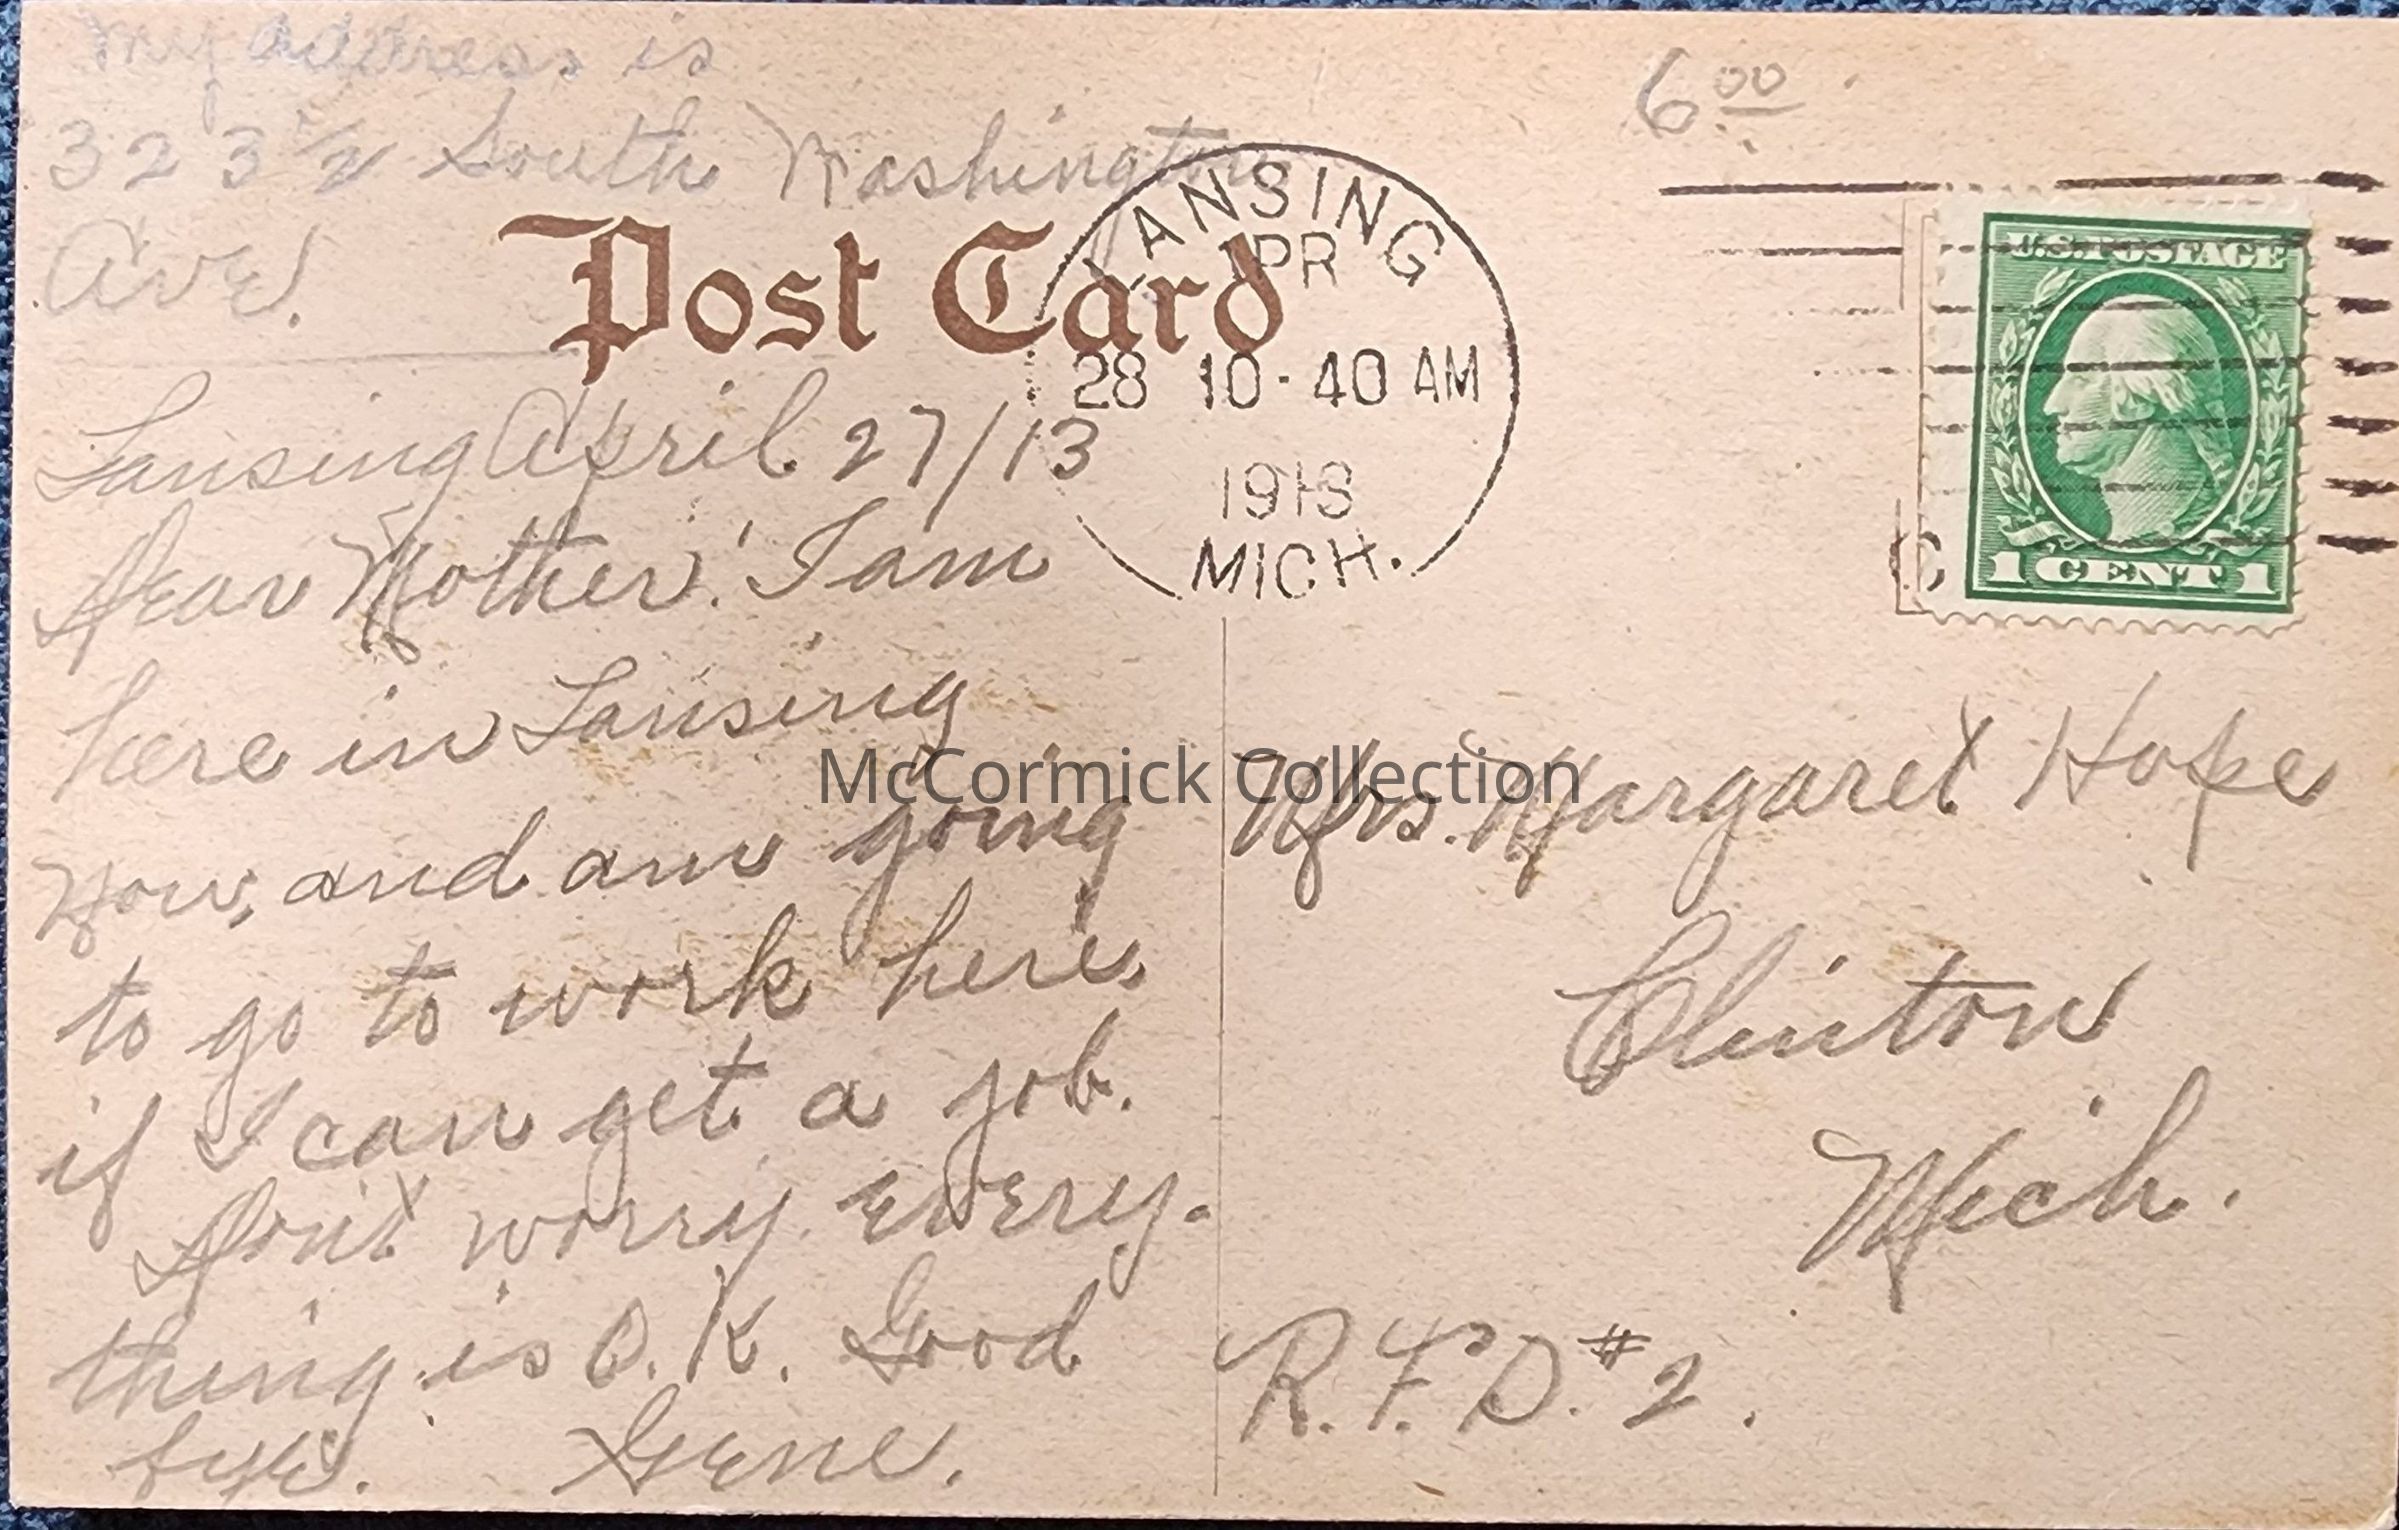 my address is
323 1/2 South Washington
Ave.
6 00
Post Card
LANSING
APR
28 10-40 AM
1913
MICH.
U.S. POSTAGE
1 CENT 1
Lansing April 27/13
Dear Mother! I am
here in Lansing
Now, and am going
to go to work here.
if I can get a job.
Don't worry. every-
thing is O.K. Good
bye. Gene.
McCormick Collection
Mrs. Margaret Hope
Clinton
Mich.
R.F.D. #2.